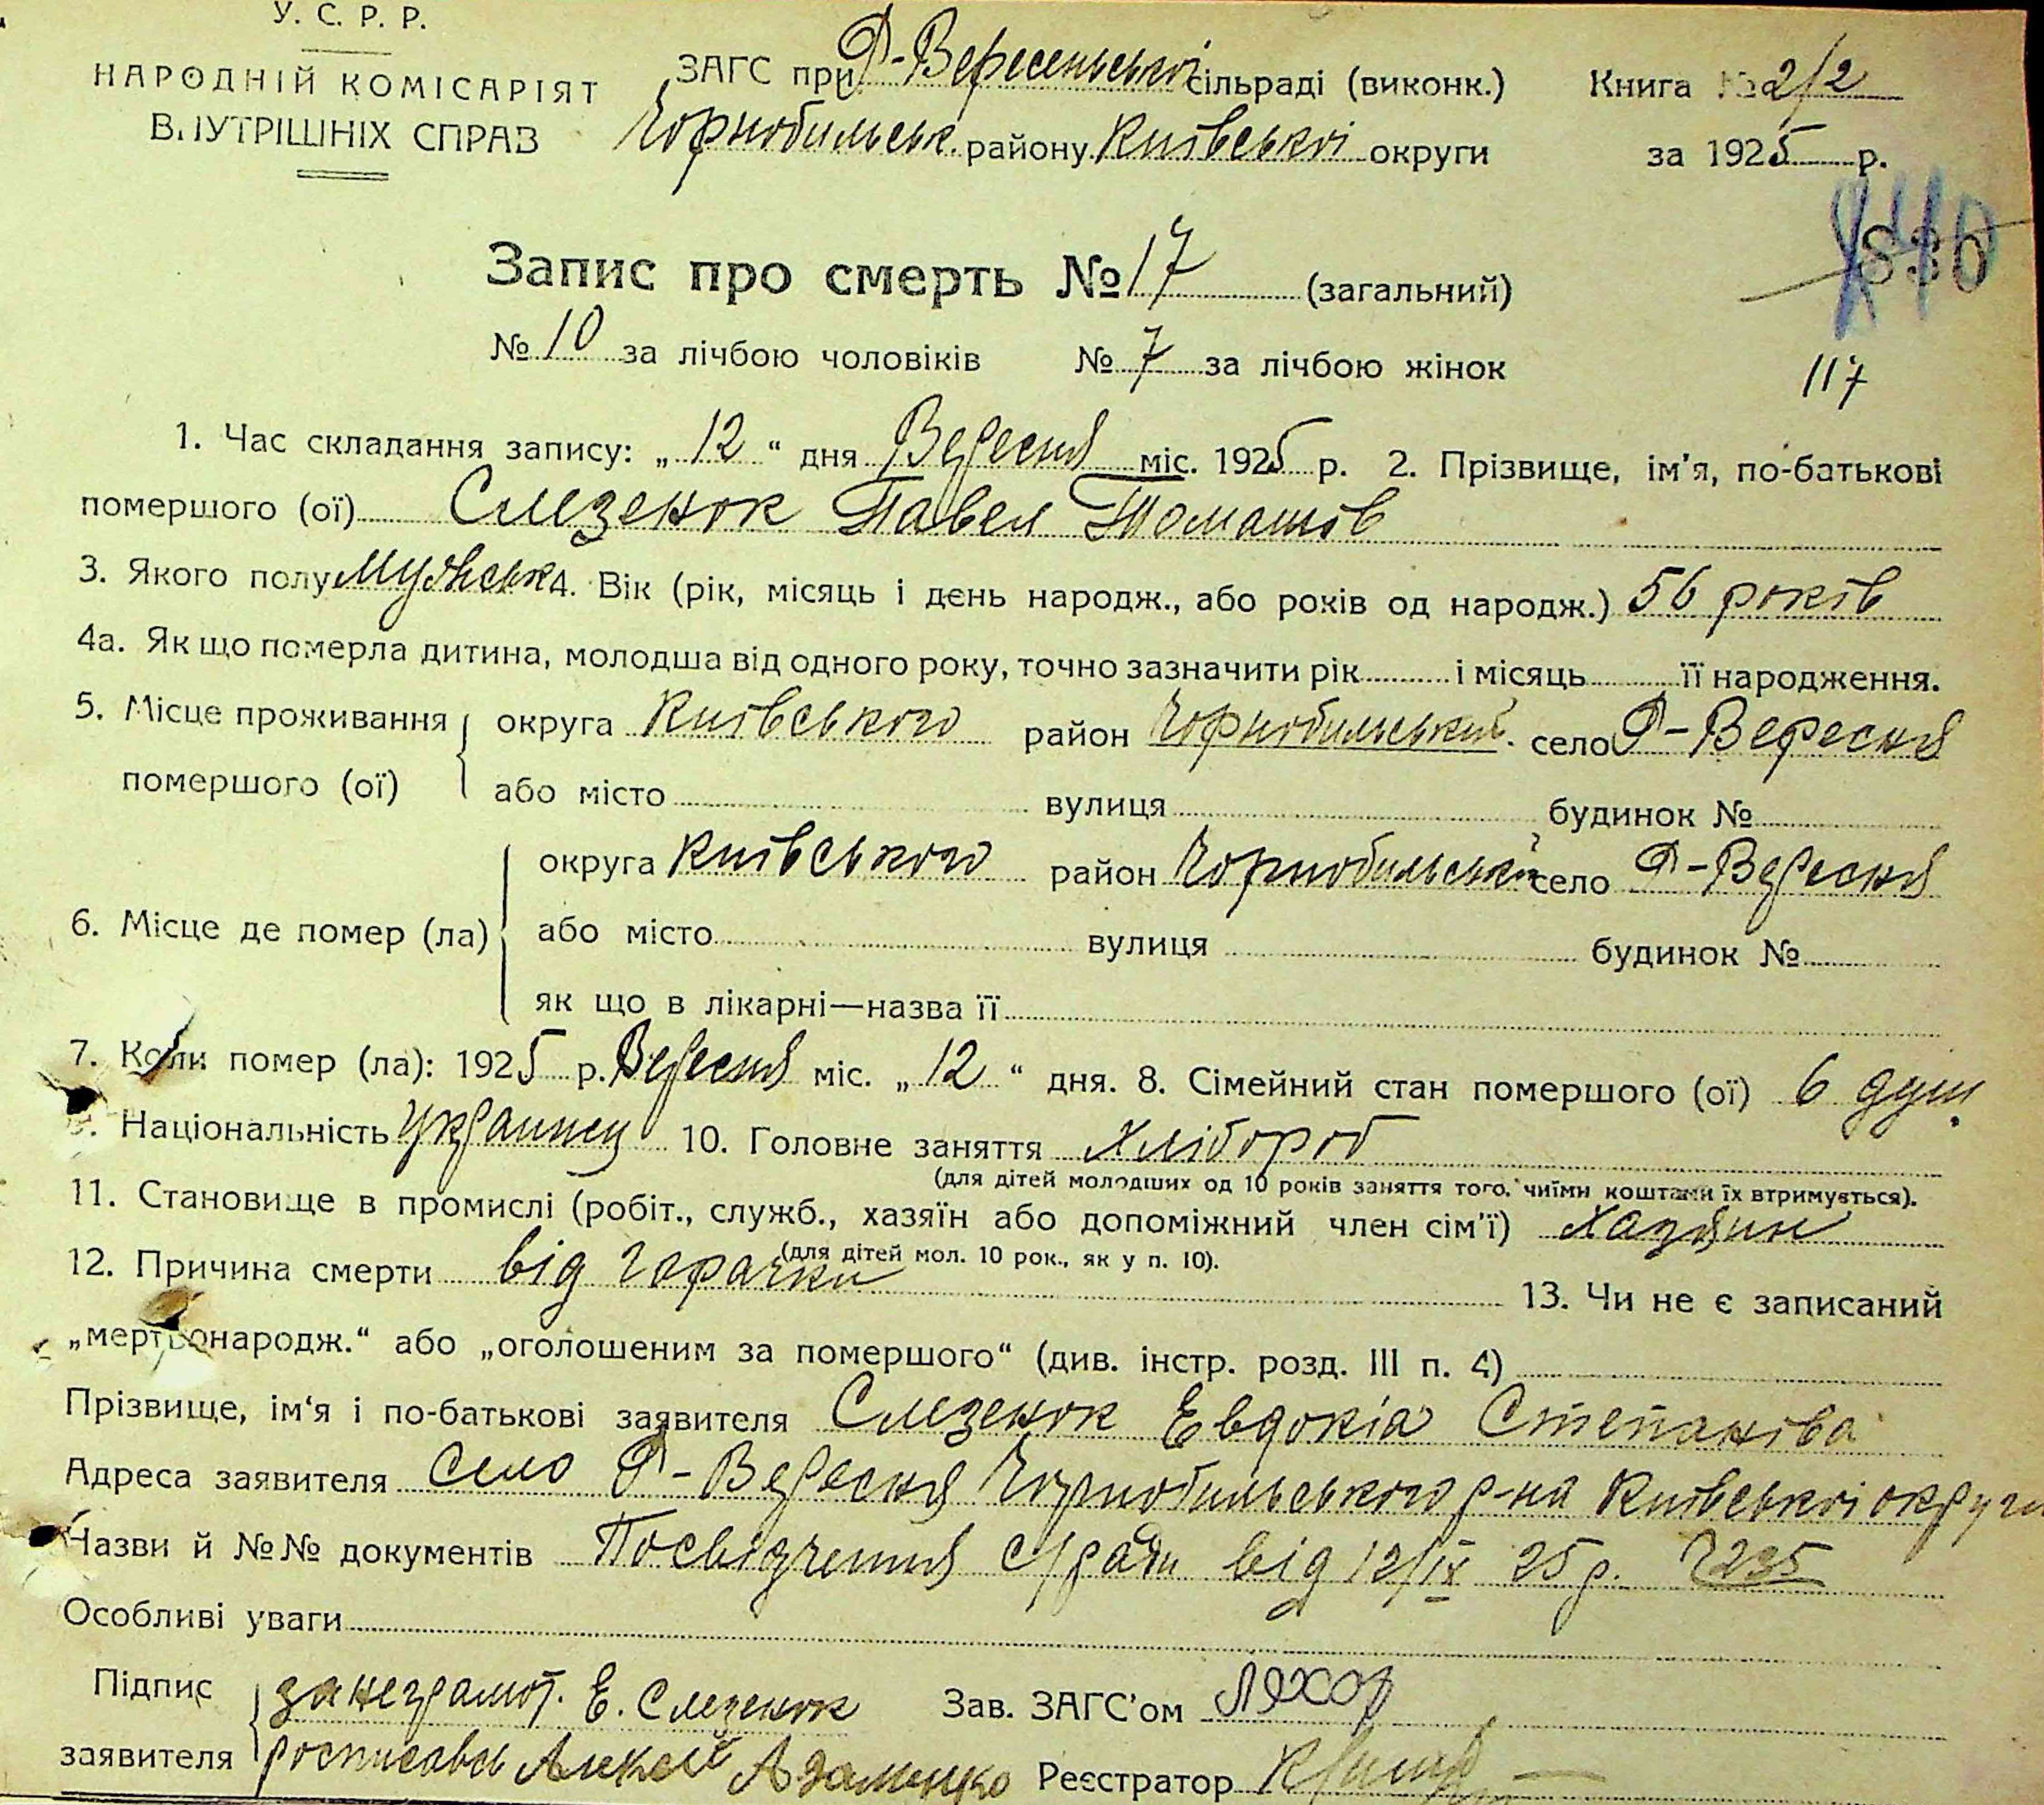 У. С. Р. Р.
НАРОДНІЙ КОМІСАРІЯТ
ВНУТРІШНІХ СПРАВ
ЗАГС при Ф-Вересенській сільраді (виконк.)
Чорнобильськ. району Київської округи
Книга № 2/2
за 1925 р.
Запис про смерть № 17 (загальний)
№ 10 за лічбою чоловіків № 7 за лічбою жінок
117
1. Час складання запису: „12“ дня Вересня міс. 1925 р. 2. Прізвище, ім'я, по-батькові
помершого (ої) Слезенок Павел Томашів
3. Якого полу Мужськ 4. Вік (рік, місяць і день народж., або років од народж.) 56 років
4а. Як що померла дитина, молодша від одного року, точно зазначити рік і місяць її народження.
5. Місце проживання помершого (ої) округа Київського район Чорнобильський село Ф-Вересня
або місто вулиця будинок №
6. Місце де помер (ла) округа Київського район Чорнобильський село Ф-Вересня
або місто вулиця будинок №
як що в лікарні—назва її
7. Коли помер (ла): 1925 р. Вересня міс. „12“ дня. 8. Сімейний стан помершого (ої) 6 душ
9. Національність Украинец 10. Головне заняття Хлібороб
(для дітей молодших од 10 років заняття того, чиїми коштами їх втримується).
11. Становище в промислі (робіт., служб., хазяїн або допоміжний член сім'ї) Хазяин
(для дітей мол. 10 рок., як у п. 10).
12. Причина смерти від горачки 13. Чи не є записаний
„мертвонародж.“ або „оголошеним за помершого“ (див. інстр. розд. III п. 4)
Прізвище, ім'я і по-батькові заявителя Слезенок Евдокіа Степанова
Адреса заявителя Село Ф-Вересня Чорнобильського р-на Київської округи
Назви й №№ документів Посвідчення с/ради від 12/IX 25 р. 235
Особливі уваги
Підпис заявителя за неграмот. Е. Слезенок
росписався Алексей Адаменко
Зав. ЗАГС'ом Ляхор
Реєстратор